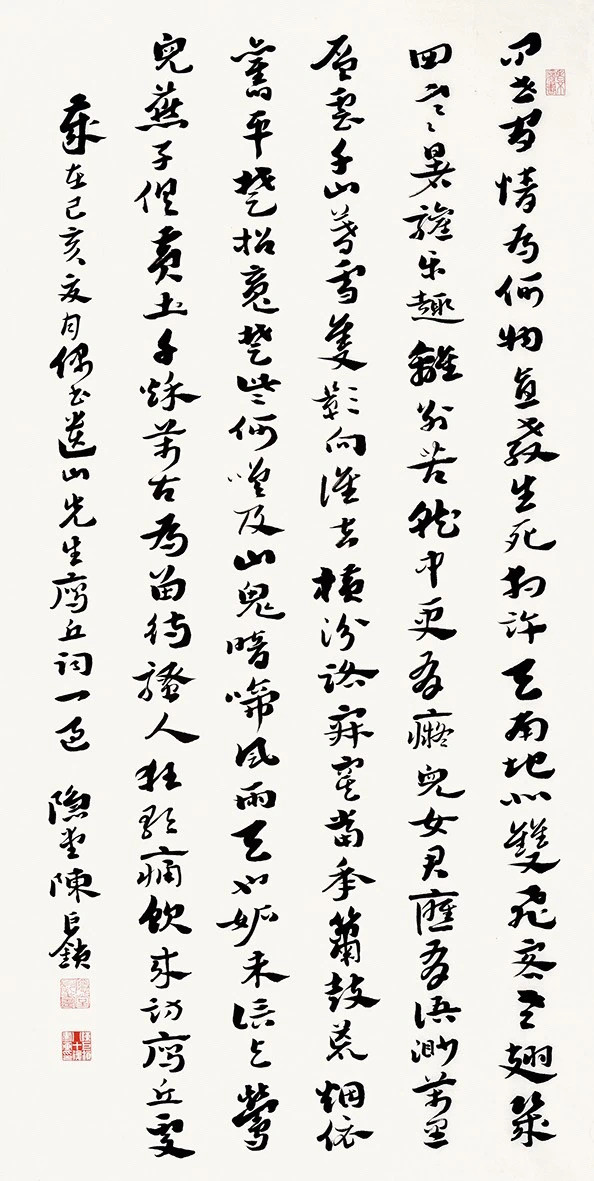 問世間情為何物直教生死相許天南地北雙飛客老翅幾
回寒暑驩樂趣離別苦就中更有癡兒女君應有語渺萬里
層雲千山暮雪隻影向誰去橫汾路寂寞當年簫鼓荒煙依
舊平楚招魂楚些何嗟及山鬼暗啼風雨天也妬未信與鶯
兒燕子俱黃土千秋萬古為留待騷人狂歌痛飲來訪鴈丘處
歲在己亥夏月偶書遺山先生鴈丘詞一過 隱堂陳巨鎖